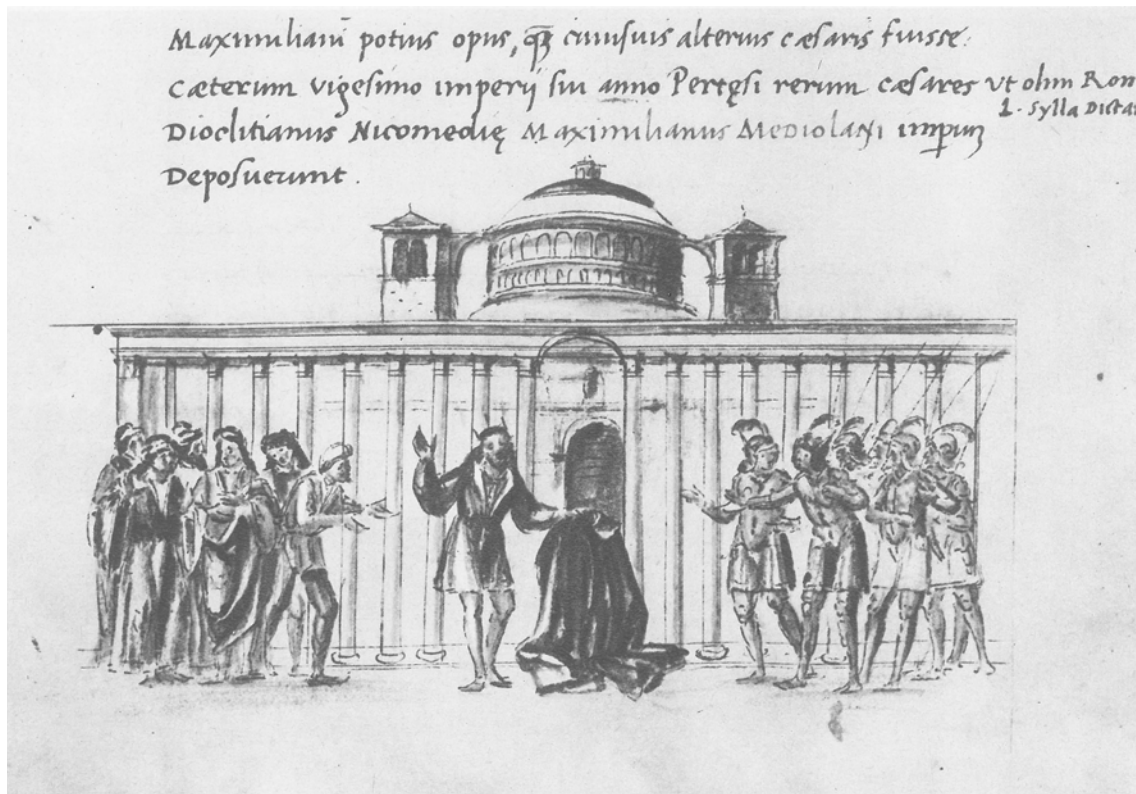 Maximiliani potius opus, q̃ȝ cuiusuis alterius cæsaris fuisse.
Cæterum vigesimo imperij sui anno Pertęsi rerum cæsares vt olim Rom
1. Sylla Dicta
Dioclitianus Nicomedię Maximilianus Mediolani imp̱um
Deposuerunt.